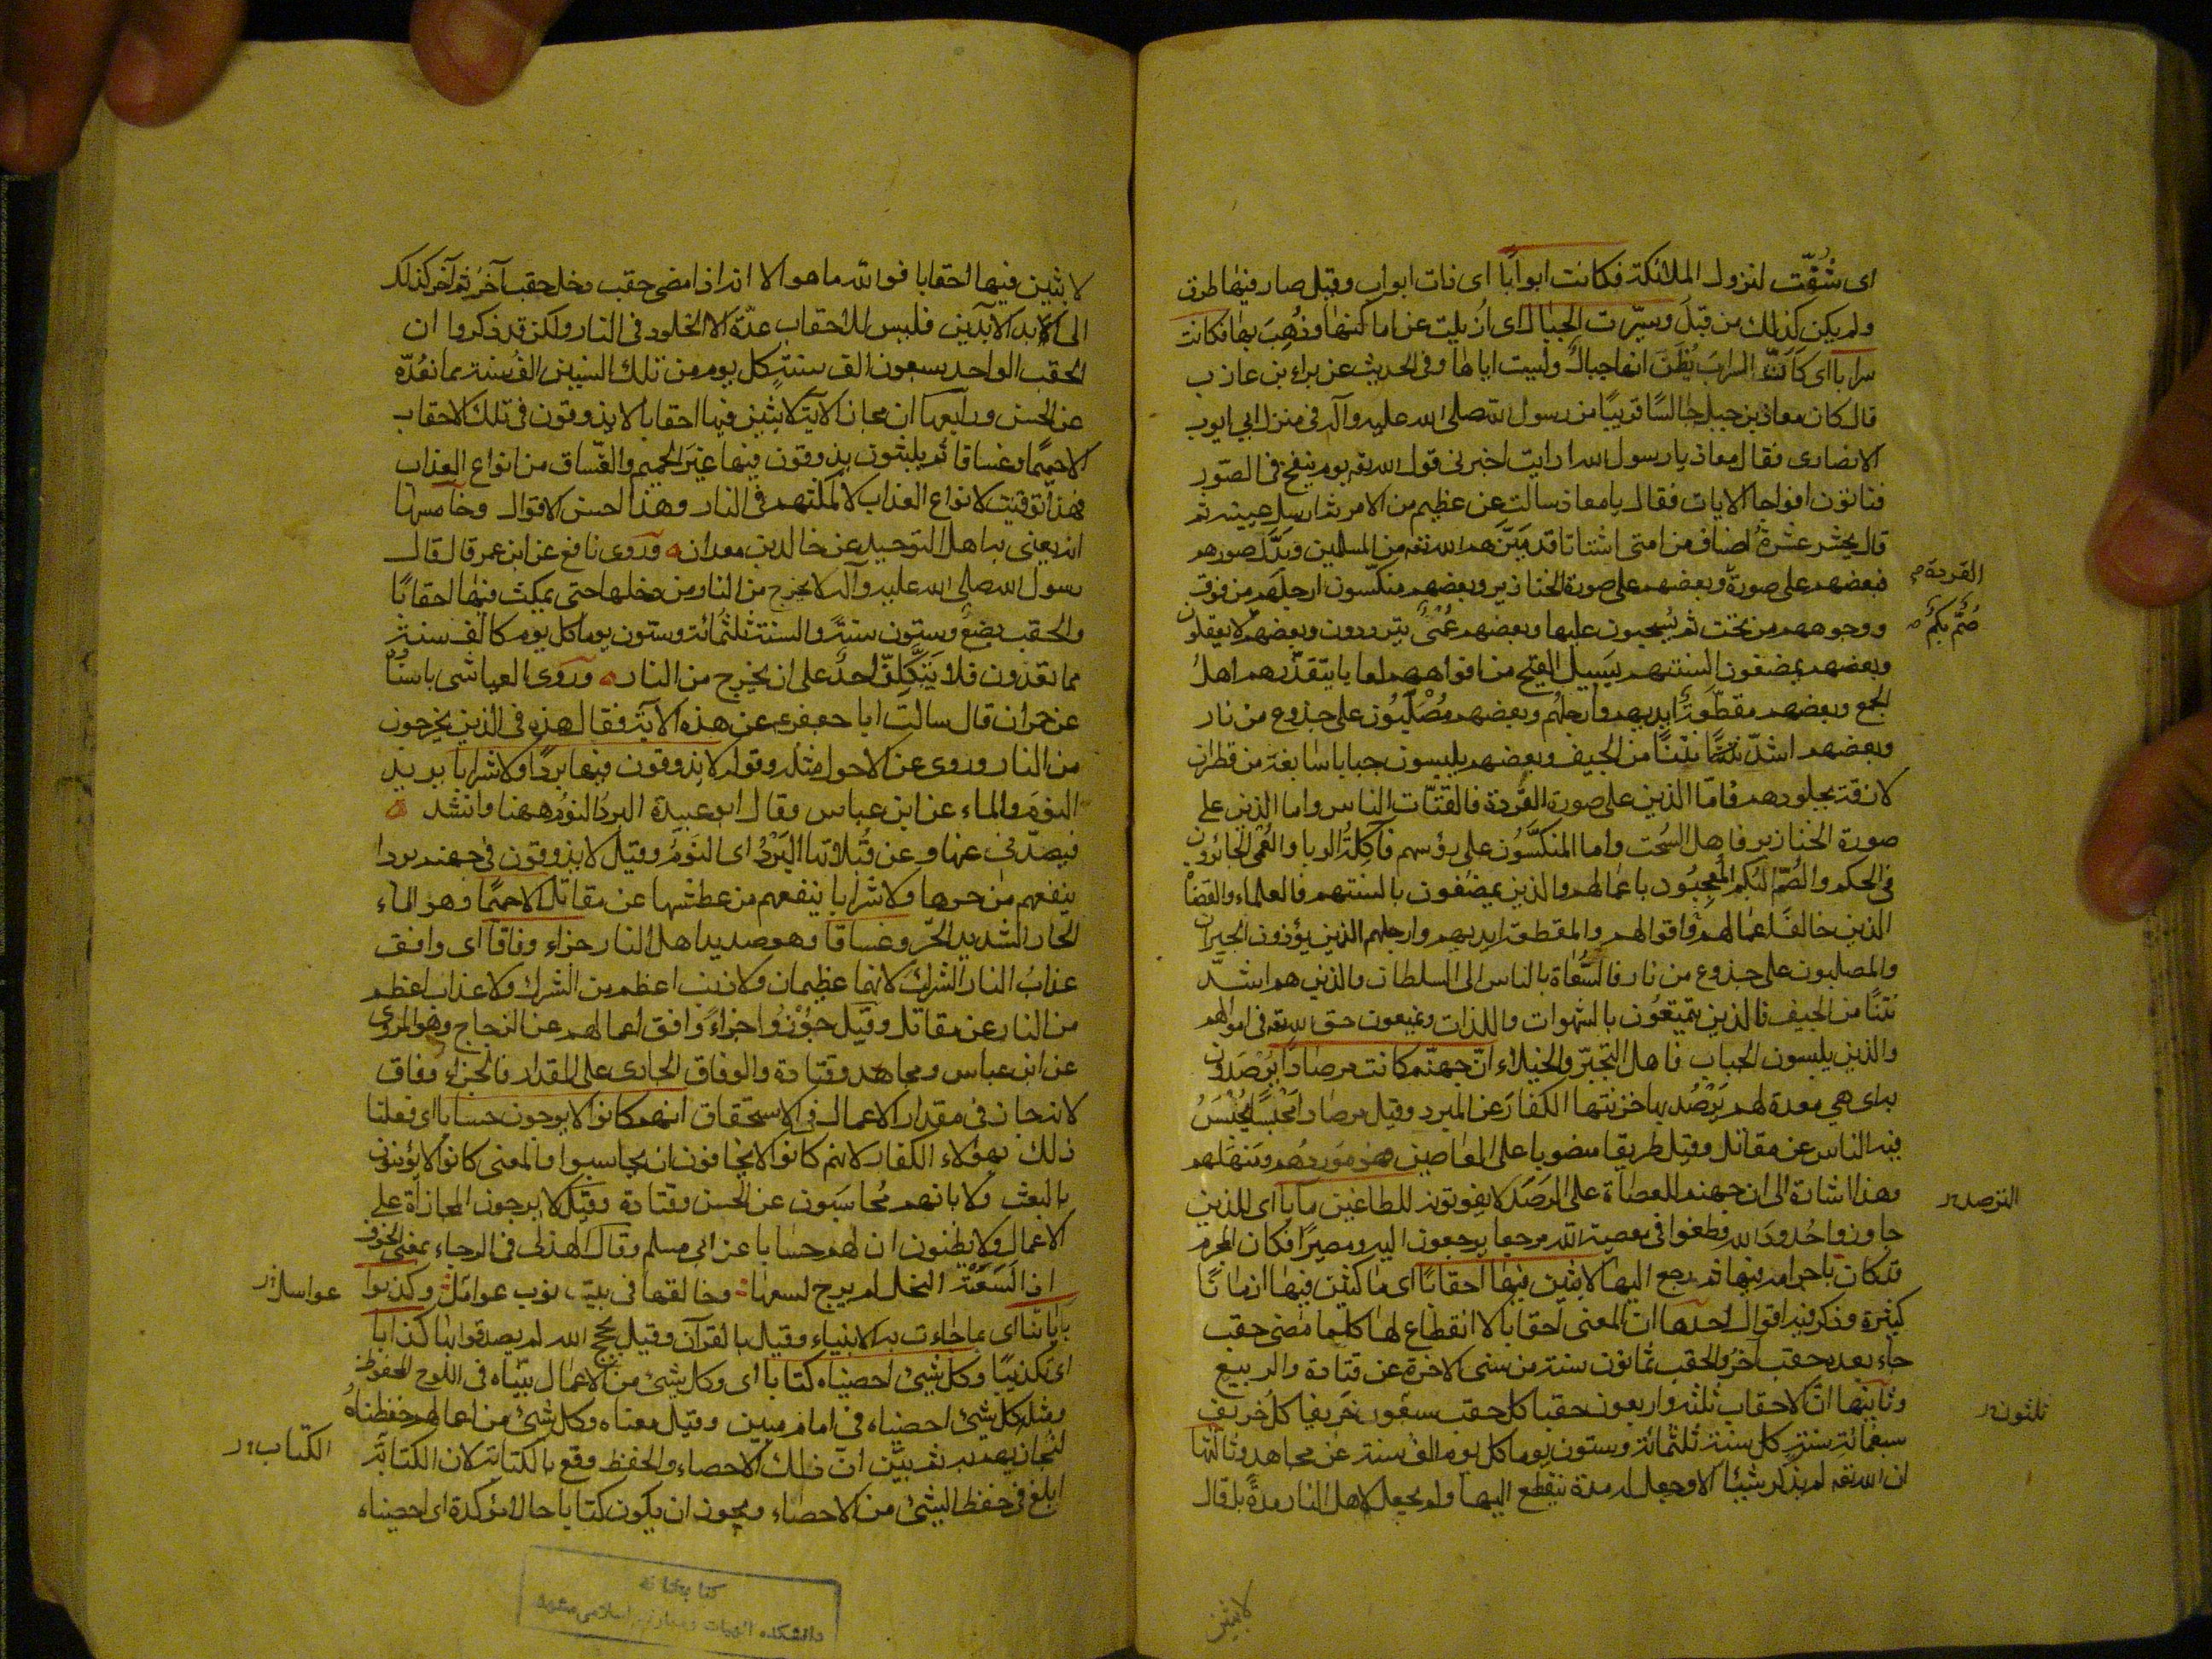 اى شُقّت لنزول الملائكة فكانت ابوابا اى ذات ابواب وقيل صار فيها طرق
ولم يكن كذلك من قبل وسيّرت الجبال اى ازيلت عن اماكنها وذُهِبَ بها فكانت
سرابا اى كالسراب يُظنّ انها جبال وليست اياها وفى الحديث عن براء بن عازب
قال كان معاذ بن جبل جالسًا قريبًا من رسول الله صلى الله عليه وآله فى منزل ابي ايوب
الانصارى فقال معاذ يا رسول الله ارايت اخبرنى قول الله تع يوم ينفخ فى الصّور
فتاتون افواجا الايات فقال يا معاذ سالت عن عظيم من الامر ثم ارسل عينيه ثم
قال يحشر عشرة اصناف من امتى اشتاتا قد ميّزهم الله تع من المسلمين وبدّل صورهم
فبعضهم على صورة وبعضهم على صورة الخنازير وبعضهم منكّسون ارجلهم من فوق
القردة
ووجوههم من تحت ثم يُسحبون عليها وبعضهم عُمْىٌ يتردون وبعضهم لا يعقلون
صُمٌّ بكمٌ
وبعضهم يمضغون السنتهم يسيل القيح من افواههم لعابا يتقذّرهم اهل
الجمع وبعضهم مقطّعة ايديهم وارجلهم وبعضهم مُصَلَّبون على جذوع من نار
وبعضهم اشدّ نتنًا من الجيف وبعضهم يلبسون جبابا سابغة من قطران
لازقة بجلودهم فامّا الذين على صورة القردة فالقتّات من الناس واما الذين على
صورة الخنازير فاهل السُحت واما المنكّسُون على رؤسهم فآكلة الربا والعُمْى الجائرون
فى الحكم والصُمّ البُكم المُعجبُون باعمالهم والذين يمضغون بالسنتهم فالعلماء والقضاة
الذين خالف اعمالهم اقوالهم والمقطعة ايديهم وارجلهم الذين يؤذون الجيران
والمصلبون على جذوع من نار فالسُّعاة بالناس الى السلطان والذين هم اشدّ
نتنًا من الجيف فالذين يتمتعُون بالشهوات واللذات ويمنعون حق الله تع فى اموالهم
والذين يلبسون الجباب فاهل التجبّر والخيلاء انّ جهنّم كانت مرصادًا يُرْصَدون
به اى هى معدة لهم يَرْصُد بها خزنتها الكفار عن المبرد وقيل مرصادا مَحْبسًا يُحْبَسُ
فيه الناس عن مقاتل وقيل طريقا منصوبا على العاصين فهو مَوردهم ومنهلهم
وهذا اشارة الى ان جهنم للعصاة على الرصَد لا يفوتونه للطاغين مآبا اى للذين
الترصد
جاوزوا حُدودَ الله وطغوا فى معصية الله مرجعا يرجعون اليه ومصيرًا فكان المجرم
قد كان باجرامه فيها ثم رجع اليها لابثين فيها احقابًا اى ماكثين فيها ازمانًا
كثيرة وذكر فيه اقوال احدها ان المعنى احقابا لا انقطاع لها كلما مضى حقب
جاء بعده حقب آخر والحقب ثمانون سنة من سنى الاخرة عن قتادة والربيع
وثانيها انّ الاحقاب ثلثة واربعون حقبا كل حقب سبعون خريفا كل خريف
ثلثون
سبعمائة سنة كل سنة ثلثمائة وستون يوما كل يوم الف سنة عن مجاهد وثالثها
ان الله تع لم يذكر شيئا الا وجعل له مدة ينقطع اليها ولم يجعل لاهل النار مدةً بل قال
لابثين
لابثين فيها احقابا فوالله ما هو الا انه اذا مضى حقب دخل حقب آخر ثم آخر كذلك
الى ابد الآبدين فليس للاحقاب عدّة الا الخلود فى النار ولكن قد ذكروا ان
الحقب الواحد سبعون الف سنة كل يوم من تلك السنين الف سنة مما نعُدّه
عن الحسن ورابعها ان مجاز الآية لابثين فيها احقابا لا يذوقون فى تلك الاحقاب
الا حميما وغساقا ثم يلبثون يذوقون فيها غيرَ الحميم والغّساق من انواع العذاب
فهذا توقيت لانواع العذاب لا لمكثهم فى النار وهذا احسن الاقوال وخامسها
انه يعنى به اهل التوحيد عن خالد بن معدان وروى نافع عن ابن عمر قال قال
رسول الله صلى الله عليه وآله لا يخرج من النار من دخلها حتى يمكث فيها احقابًا
والحقب بضعٌ وستون سنةً والسنة ثلثمائة وستون يوما كل يوم كالف سنة
مما تعدون فلا يَتَّكِلَنّ احدٌ على ان يخرج من النار وروى العياشى باسناده
عن حمران قال سالت ابا جعفر ع عن هذه الآية فقال هذه فى الذين يخرجون
من النار وروى عن الاحول مثله وقوله لا يذوقون فيها بردًا ولا شرابا يريد
النوم والماء عن ابن عباس وقال ابو عبيدة البردُ النوُم ههنا وانشد
فيصدّنى عنها وعن قُبُلاتها البَرْدُ اى النَّوْمُ وقيل لا يذوقون فى جهنم بردا
ينفعهم من حرها ولا شرابا ينفعهم من عطشها عن مقاتل الا حميمًا وهو الماء
الحار الشديد الحرّ وغساقا وهو صديد اهل النار جزاء وفاقا اى وافق
عذابُ النار الشرك لانهما عظيمان ولا ذنب اعظم من الشرك ولا عذاب اعظم
من النار عن مقاتل وقيل جُوْزُوا جزاءً وافق اعمالهم عن الزجاج وهو المروى
عن ابن عباس ومجاهد وقتادة والوفاق الجارى على المقدار فالجزاء وفاق
لانه جار فى مقدار الاعمال فى الاستحقاق انهم كانوا لا يرجون حسابا اى فعلنا
ذلك بهؤلاء الكفار لانهم كانوا لا يخافون ان يحاسبوا والمعنى كانوا لا يؤمنون
بالبعث ولا بانهم مُحاسَبون عن الحسن وقتادة وقيل لا يرجون المجازاة على
الاعمال ولا يظنون ان لهم حسابا عن ابى مسلم وقال الهذلى فى الرجاء بمعنى الخوف
اذا لَسَعَتْه النحل لم يرج لسعها وخالفها فى بيت نوب عوامل وكذبوا
عواسل
بآياتنا اى بما جاءت به الانبياء وقيل بالقرآن وقيل بحجج الله لم يصدقوا بها كذابا
اى تكذيبًا وكل شئ احصيناه كتابا اى وكل شئ من الاعمال بيّناه فى اللوح المحفوظ
ومثله كل شئ احصيناه فى امام مبين وقيل معناه وكل شئ من اعمالهم حفظناه
لنجازيهم به ثم بيّن انّ ذلك الاحصاء والحفظ وقع بالكتابة لان الكتابة
الكتاب
ابلغ فى حفظ الشئ من الاحصاء ويجوز ان يكون كتابا حالا مؤكدة اى احصيناه
كتابخانه
دانشكده الهيات ومعارف اسلامى مشهد